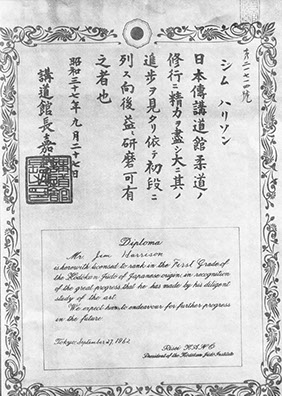 シム ハリソン
日本傳講道館柔道ノ
修行ニ精力ヲ盡シ大ニ其ノ
進歩ヲ見タリ依テ初段ニ
列ス向後益〻研磨可有
之者也
昭和三十七年九月二十七日
講道館長嘉
Diploma
Mr. Jim Harrison
is herewith licensed to rank in the First Grade of
the Kodokan Judo of Japanese origin, in recognition
of the great progress, that he has made by his diligent
study of the art.
We expect him to endeavour for further progress
in the future.
Tokyo, September 27, 1962
Risei KANO
President of the Kodokan Judo Institute